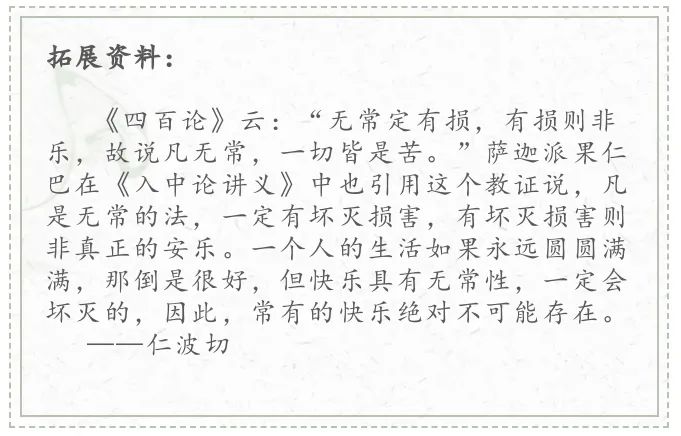 拓展资料：
《四百论》云：“无常定有损，有损则非
乐，故说凡无常，一切皆是苦。”萨迦派果仁
巴在《入中论讲义》中也引用这个教证说，凡
是无常的法，一定有坏灭损害，有坏灭损害则
非真正的安乐。一个人的生活如果永远圆圆满
满，那倒是很好，但快乐具有无常性，一定会
坏灭的，因此，常有的快乐绝对不可能存在。
——仁波切